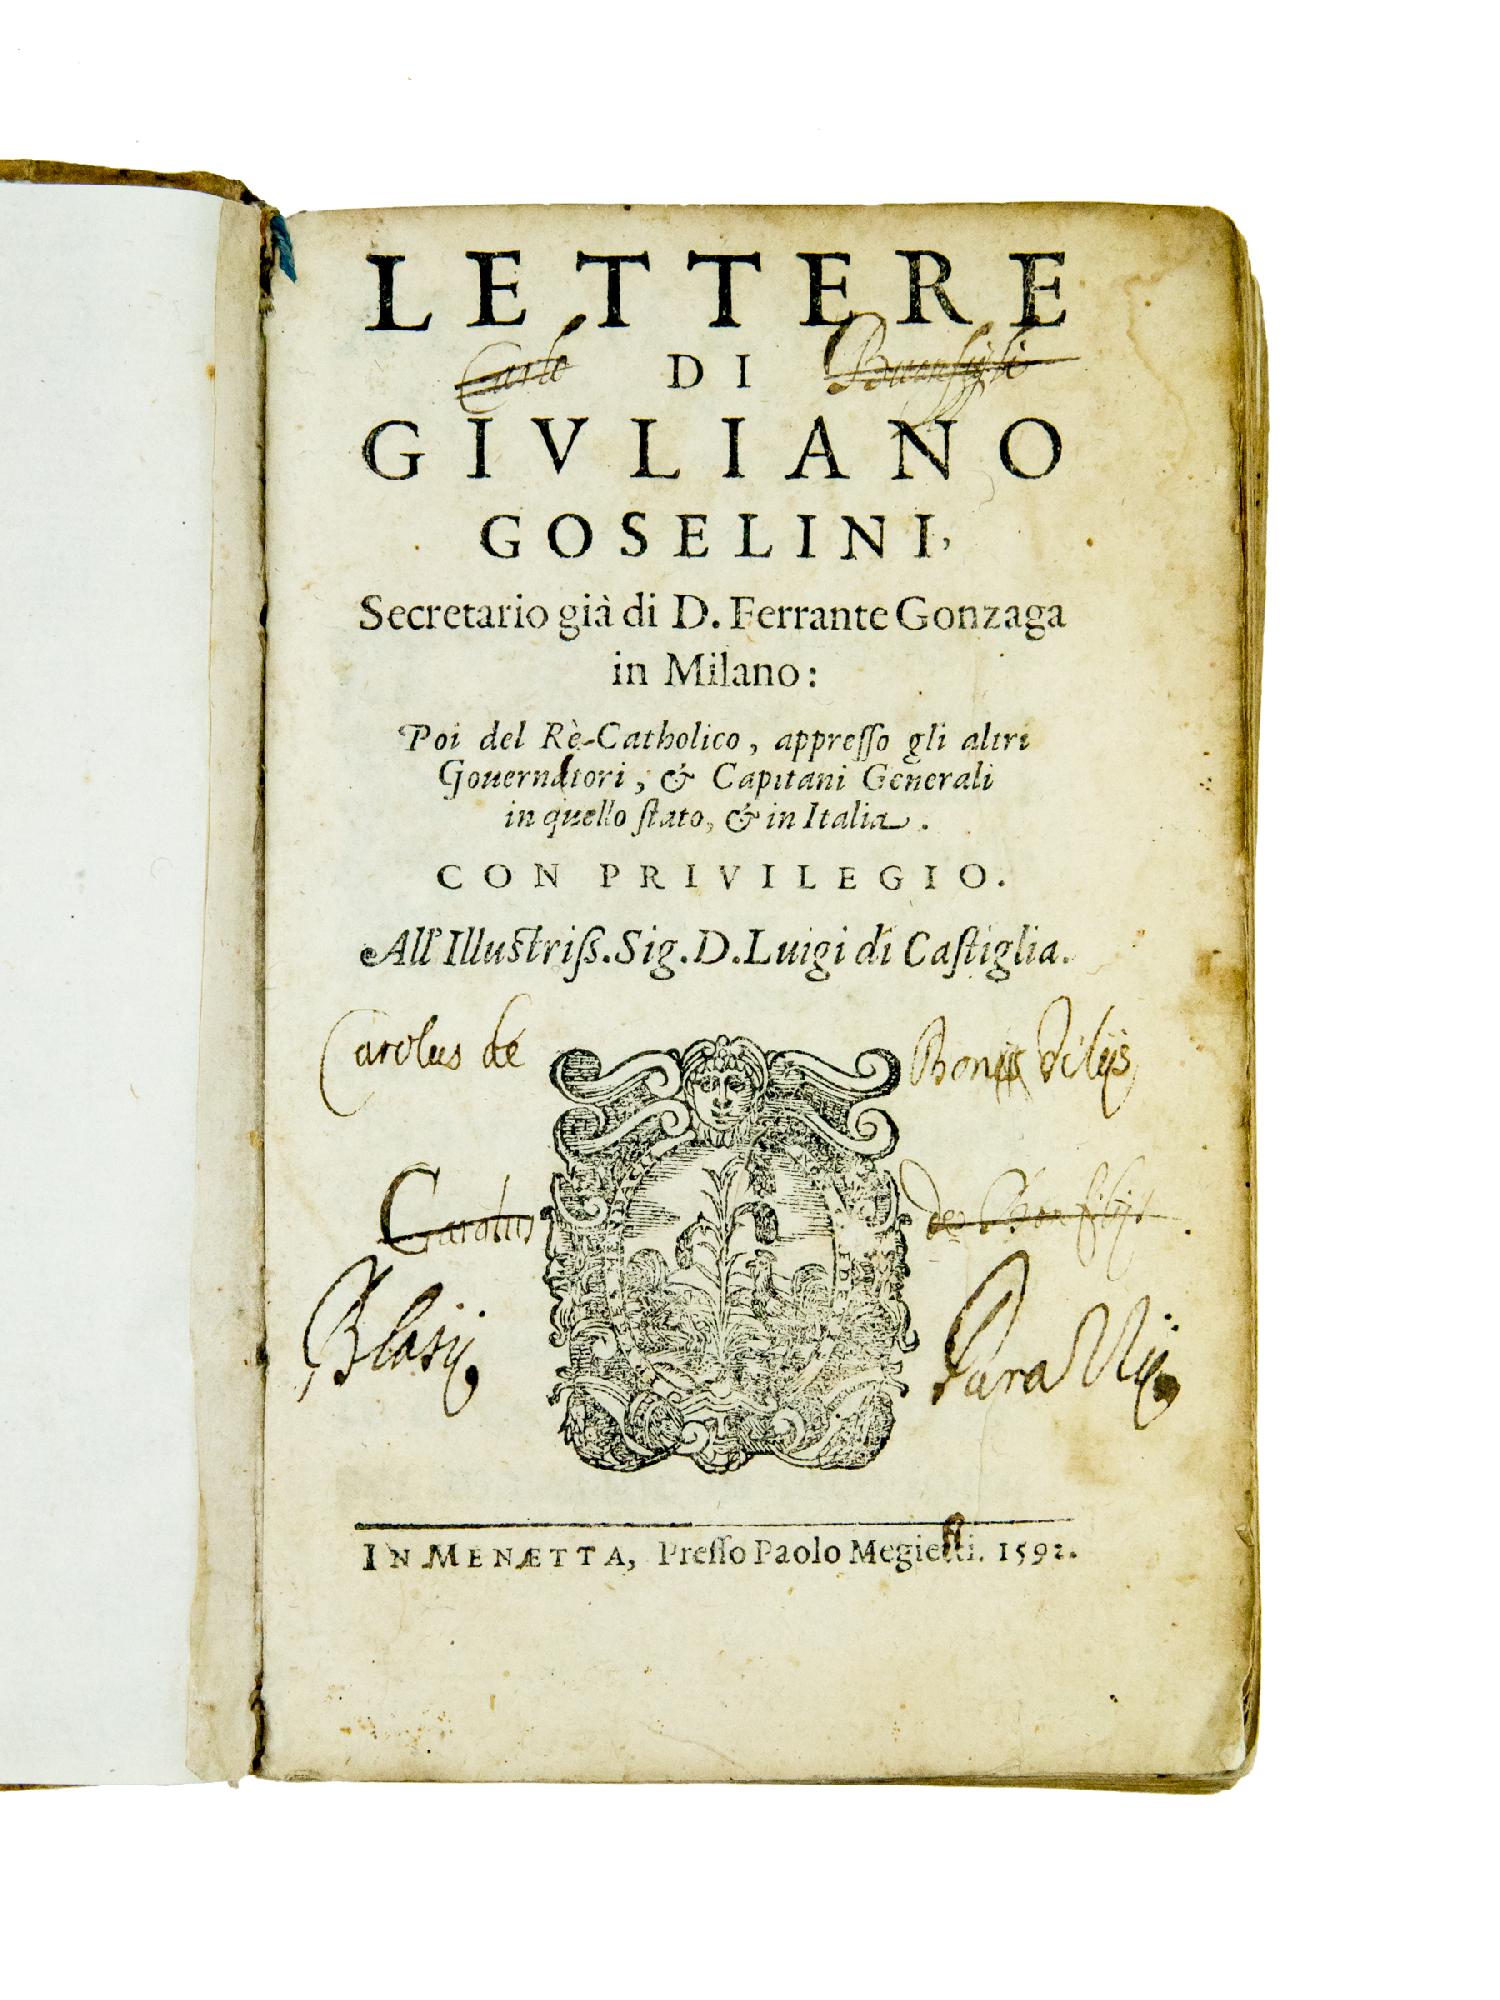 LETTERE
Carlo DI Buonfigli
GIVLIANO
GOSELINI,
Secretario già di D. Ferrante Gonzaga
in Milano:
Poi del Rè Catholico, appreſſo gli altri
Gouernatori, & Capitani Generali
in quello ſtato, & in Italia.
CON PRIVILEGIO.
All' Illuſtriſs. Sig. D. Luigi di Caſtiglia.
Carolus de Bonis filijs
Carolus de Bonfilijs
Blasij ParaVij
IN MENÆTTA, Preſſo Paolo Megietti. 1592.